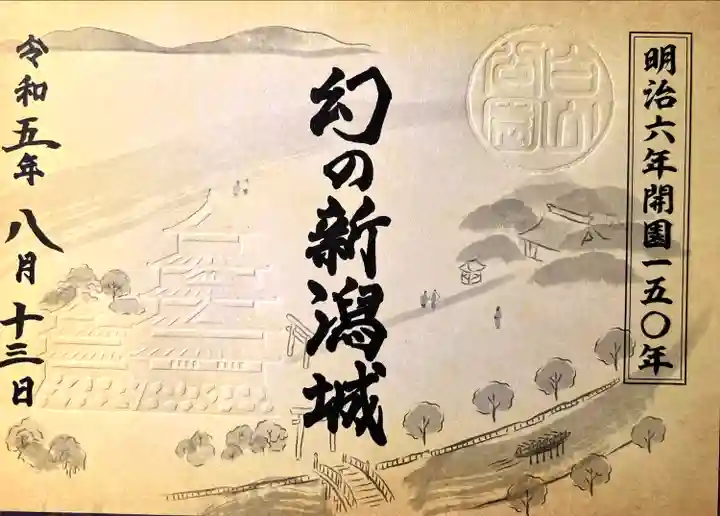 明治六年開園一五〇年
幻の新潟城
令和五年八月十三日
白山公園